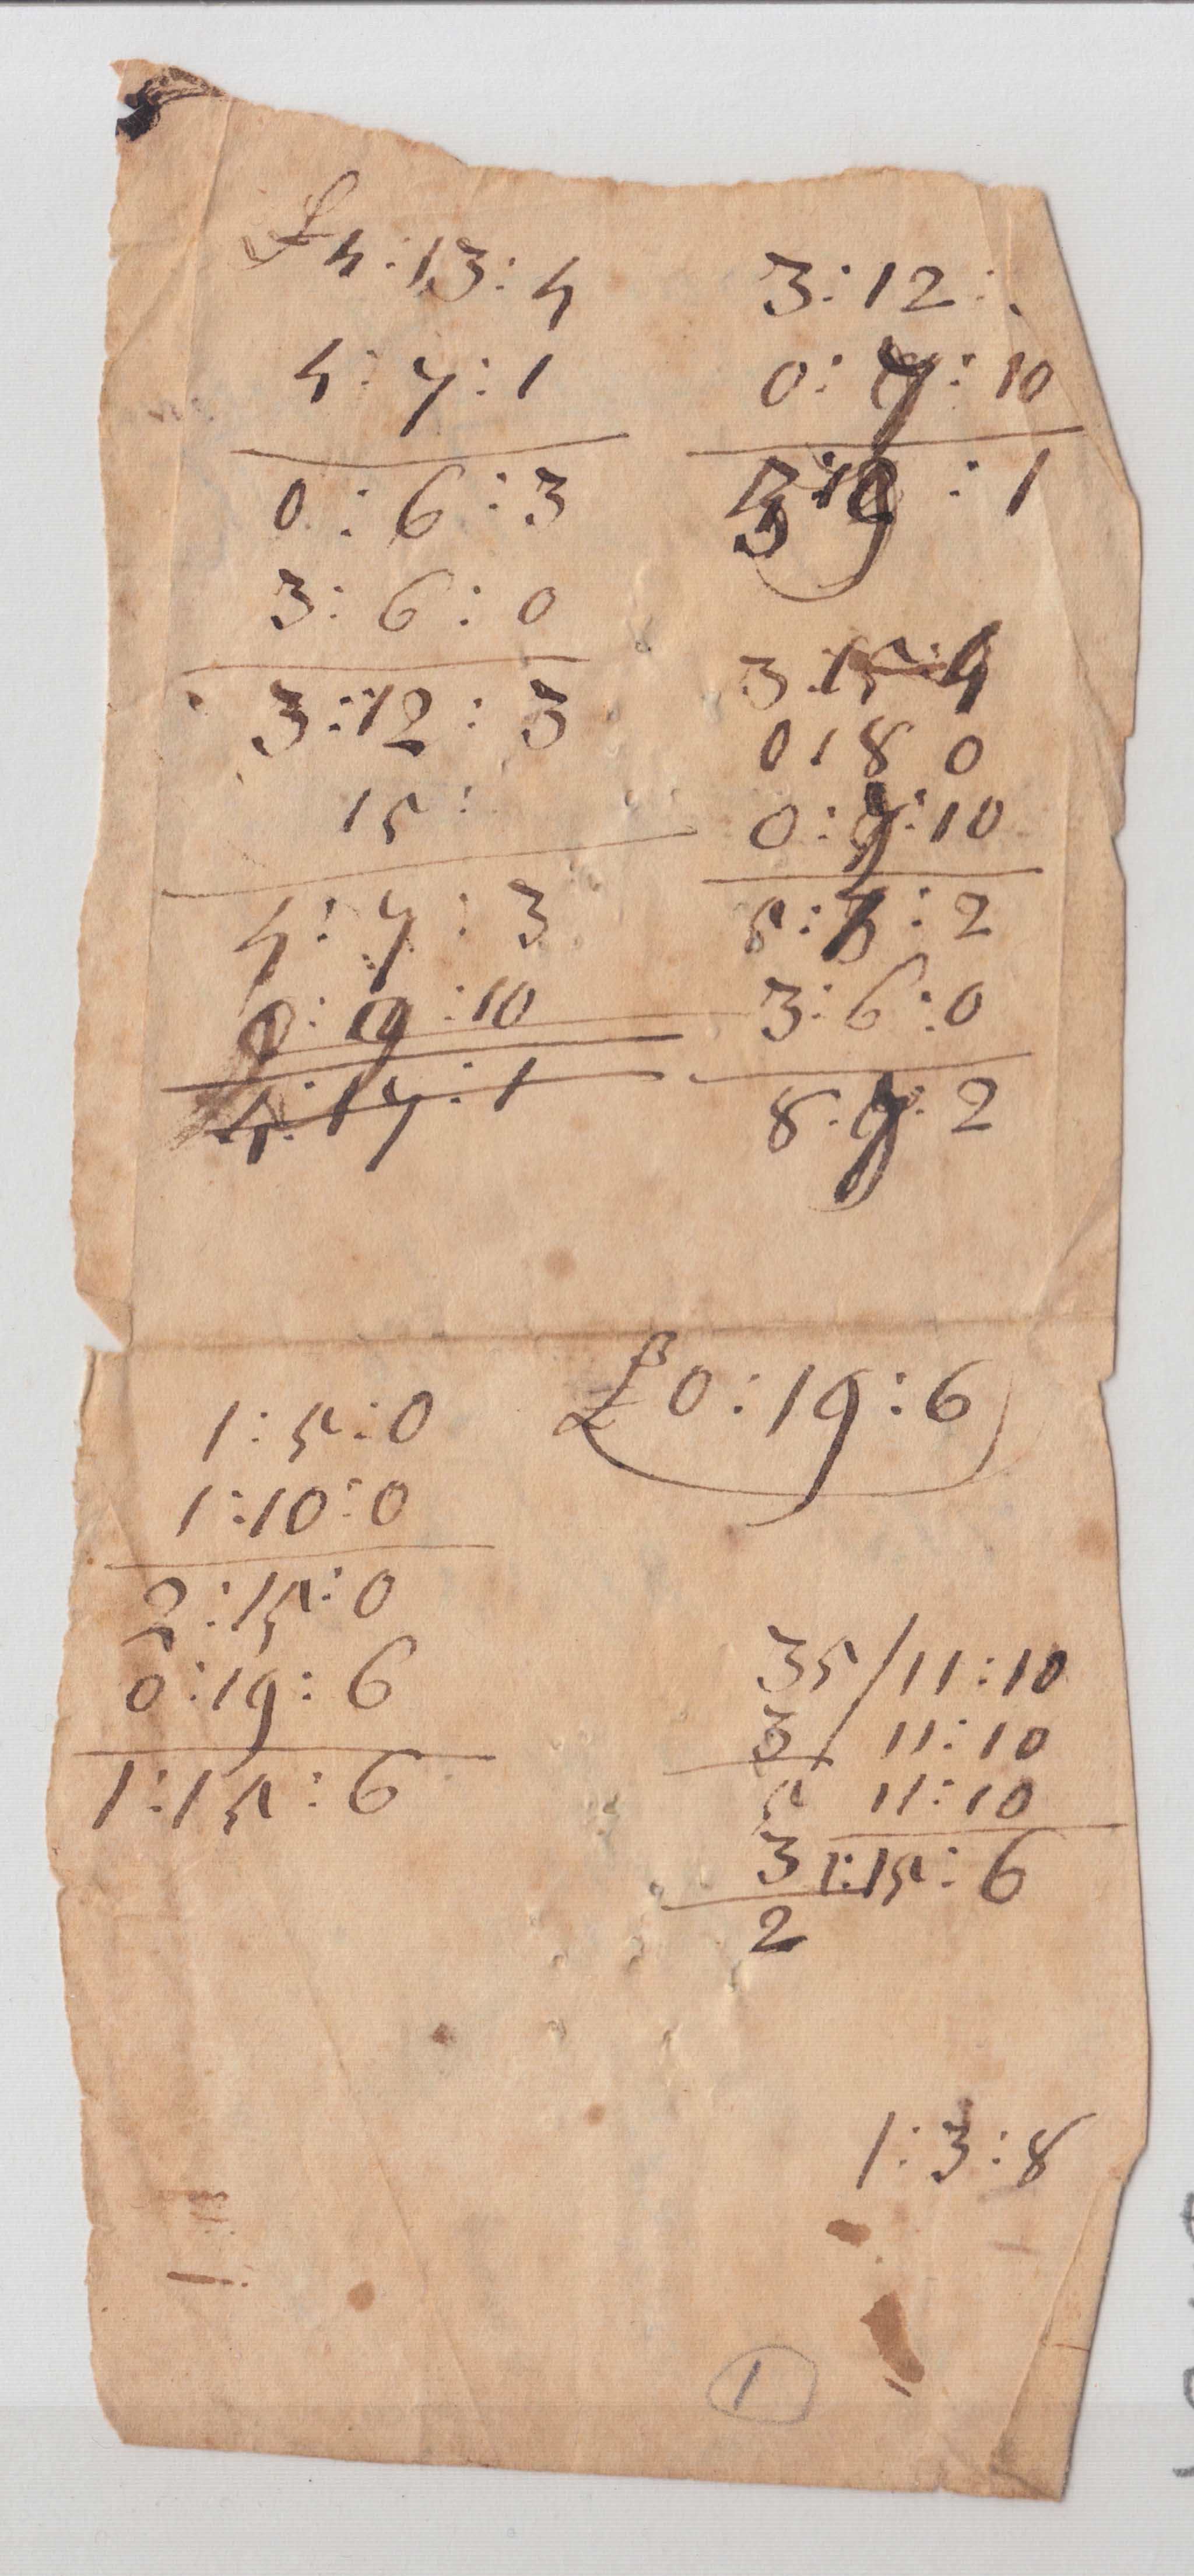 £4:13:4
4:7:1
0:6:3
3:6:0
3:12:3
15:
4:7:3
0:9:10
4:17:1
3:12:
0: :10
:1
3:15:4
0 18 0
0:9:10
5:3:2
3:6:0
8:9:2
£0:19:6
1:5:0
1:10:0
2:15:0
0:19:6
1:15:6
35/11:10
3/ 11:10
5 11:10
3 1:15:6
2
1:3:8
1